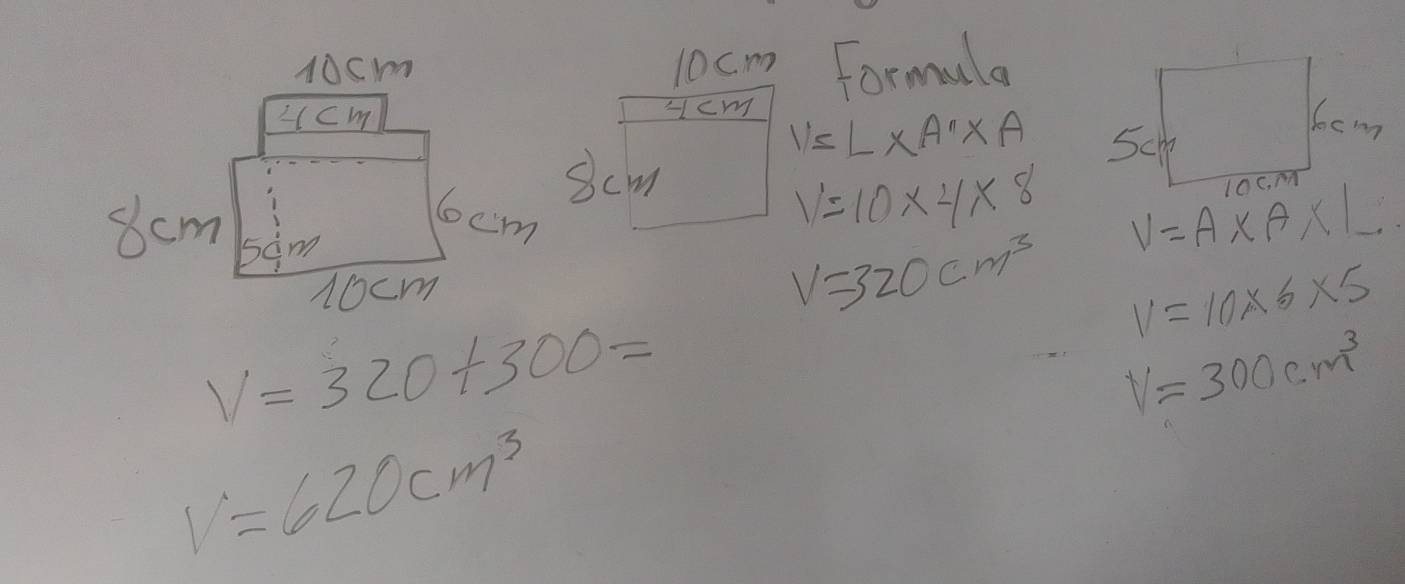 10cm
4cm
8cm
6cm
5cm
10cm
10cm
4cm
8cm
Formula
V=L×A"×A
V=10×4×8
V=320cm³
5cm
6cm
10cm
V=A×A×L.
V=10×6×5
V=300cm³
V=320+300=
V=620cm³